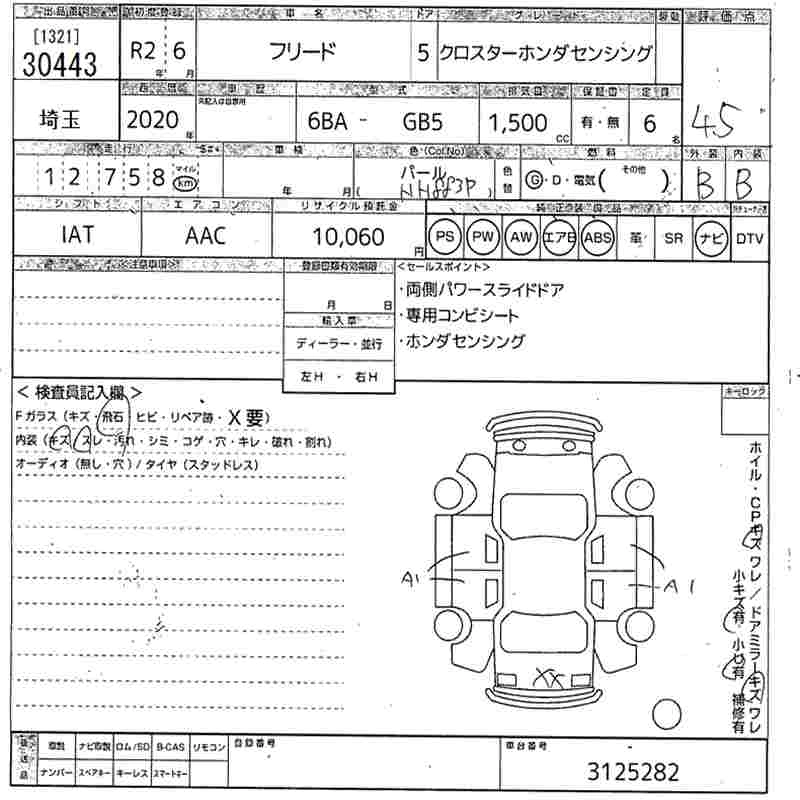 出品番号 初度登録 車名 ドア グレード 移動 評価点
[1321]
30443 R2 6 フリード 5 クロスターホンダセンシング
年 月
西暦 車歴 型式 排気量 保証書 定員
埼玉 2020 年 6BA - GB5 1,500 cc 有・無 6 名 4.5
走行 車検 色(Col No) 燃料 外装 内装
12758 マイル km 年 月 パール NH883P 色替 G・D・電気 ( その他 ) B B
シフト エアコン リサイクル預託金
IAT AAC 10,060 円 PS PW AW エアB ABS 革 SR ナビ DTV
注意事項 登録書類有効期限 <セールスポイント>
月 日 ・両側パワースライドドア
輸入車 ・専用コンビシート
ディーラー・並行 ・ホンダセンシング
左H ・ 右H
< 検査員記入欄 > キーロック
Fガラス (キズ・飛石 ヒビ・リペア跡・X要)
内装 (キズ スレ・汚れ・シミ・コゲ・穴・キレ・破れ・割れ)
オーディオ (無し・穴) / タイヤ (スタッドレス)
ホイル・CPキズ ワレ / ドアミラーキズ ワレ
小キズ有 小U有 補修有
A1 A1
XX
後送品 取説 ナビ取説 ロム/SD B-CAS リモコン 登録番号 車台番号
ナンバー スペアキー キーレス スマートキー 3125282